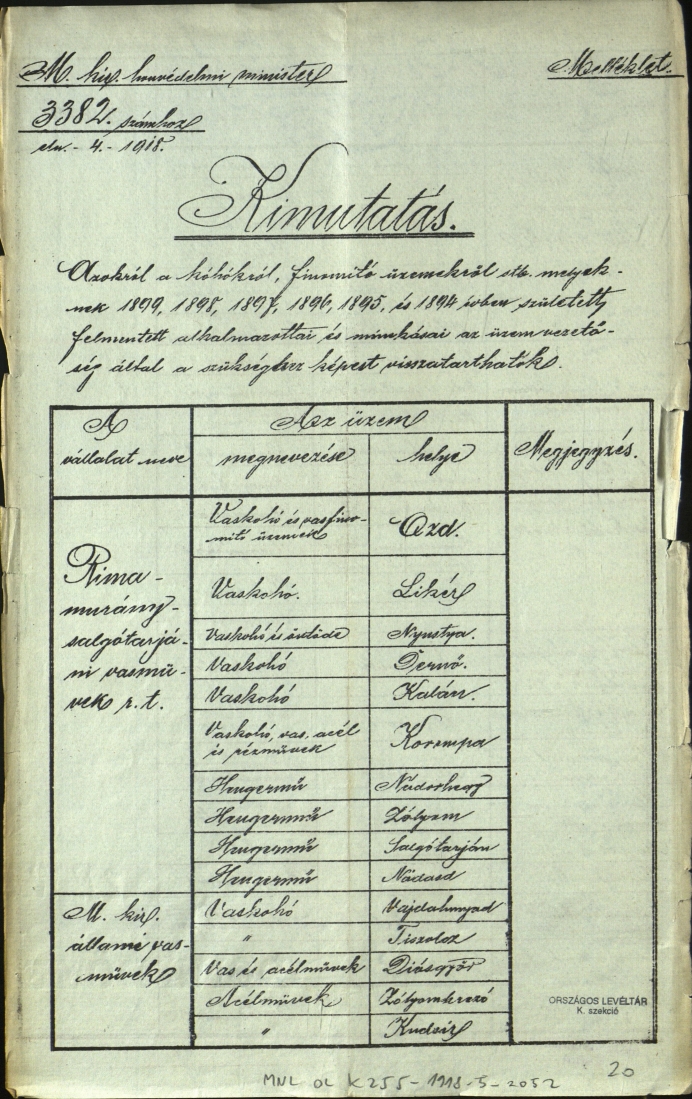 M. kir. honvédelmi minister
Melléklet.
3382. számhoz
eln. - 4. - 1918.
Kimutatás.
Azokról a kohókról, finomitó üzemekről stb. melyek-
nek 1899, 1898, 1897, 1896, 1895, és 1894 évben született,
felmentett alkalmazottai és munkásai az üzem vezető-
ség által a szükséghez képest visszatarthatók.
A vállalat neve
Az üzem
megnevezése
helye
Megjegyzés.
Rima-
murány-
salgótarjá-
ni vasmű-
vek r. t.
Vaskohó és vasfino-
mitó üzemek
Ozd.
Vaskohó.
Likér
Vaskohó és öntöde
Nyustya.
Vaskohó
Dernő.
Vaskohó
Kalán.
Vaskohó, vas, acél
és rézművek
Korompa
Hengermű
Nádorhegy
Hengermű
Zólyom
Hengermű
Salgótarján
Hengermű
Nádasd
M. kir.
állami vas-
művek
Vaskohó
Vajdahunyad
"
Tiszolcz
Vas és acélművek
Diósgyőr
Acélművek
Zólyombrezó
"
Kudsir
ORSZÁGOS LEVÉLTÁR
K. szekció
20
MNL OL K255-1918-5-2052